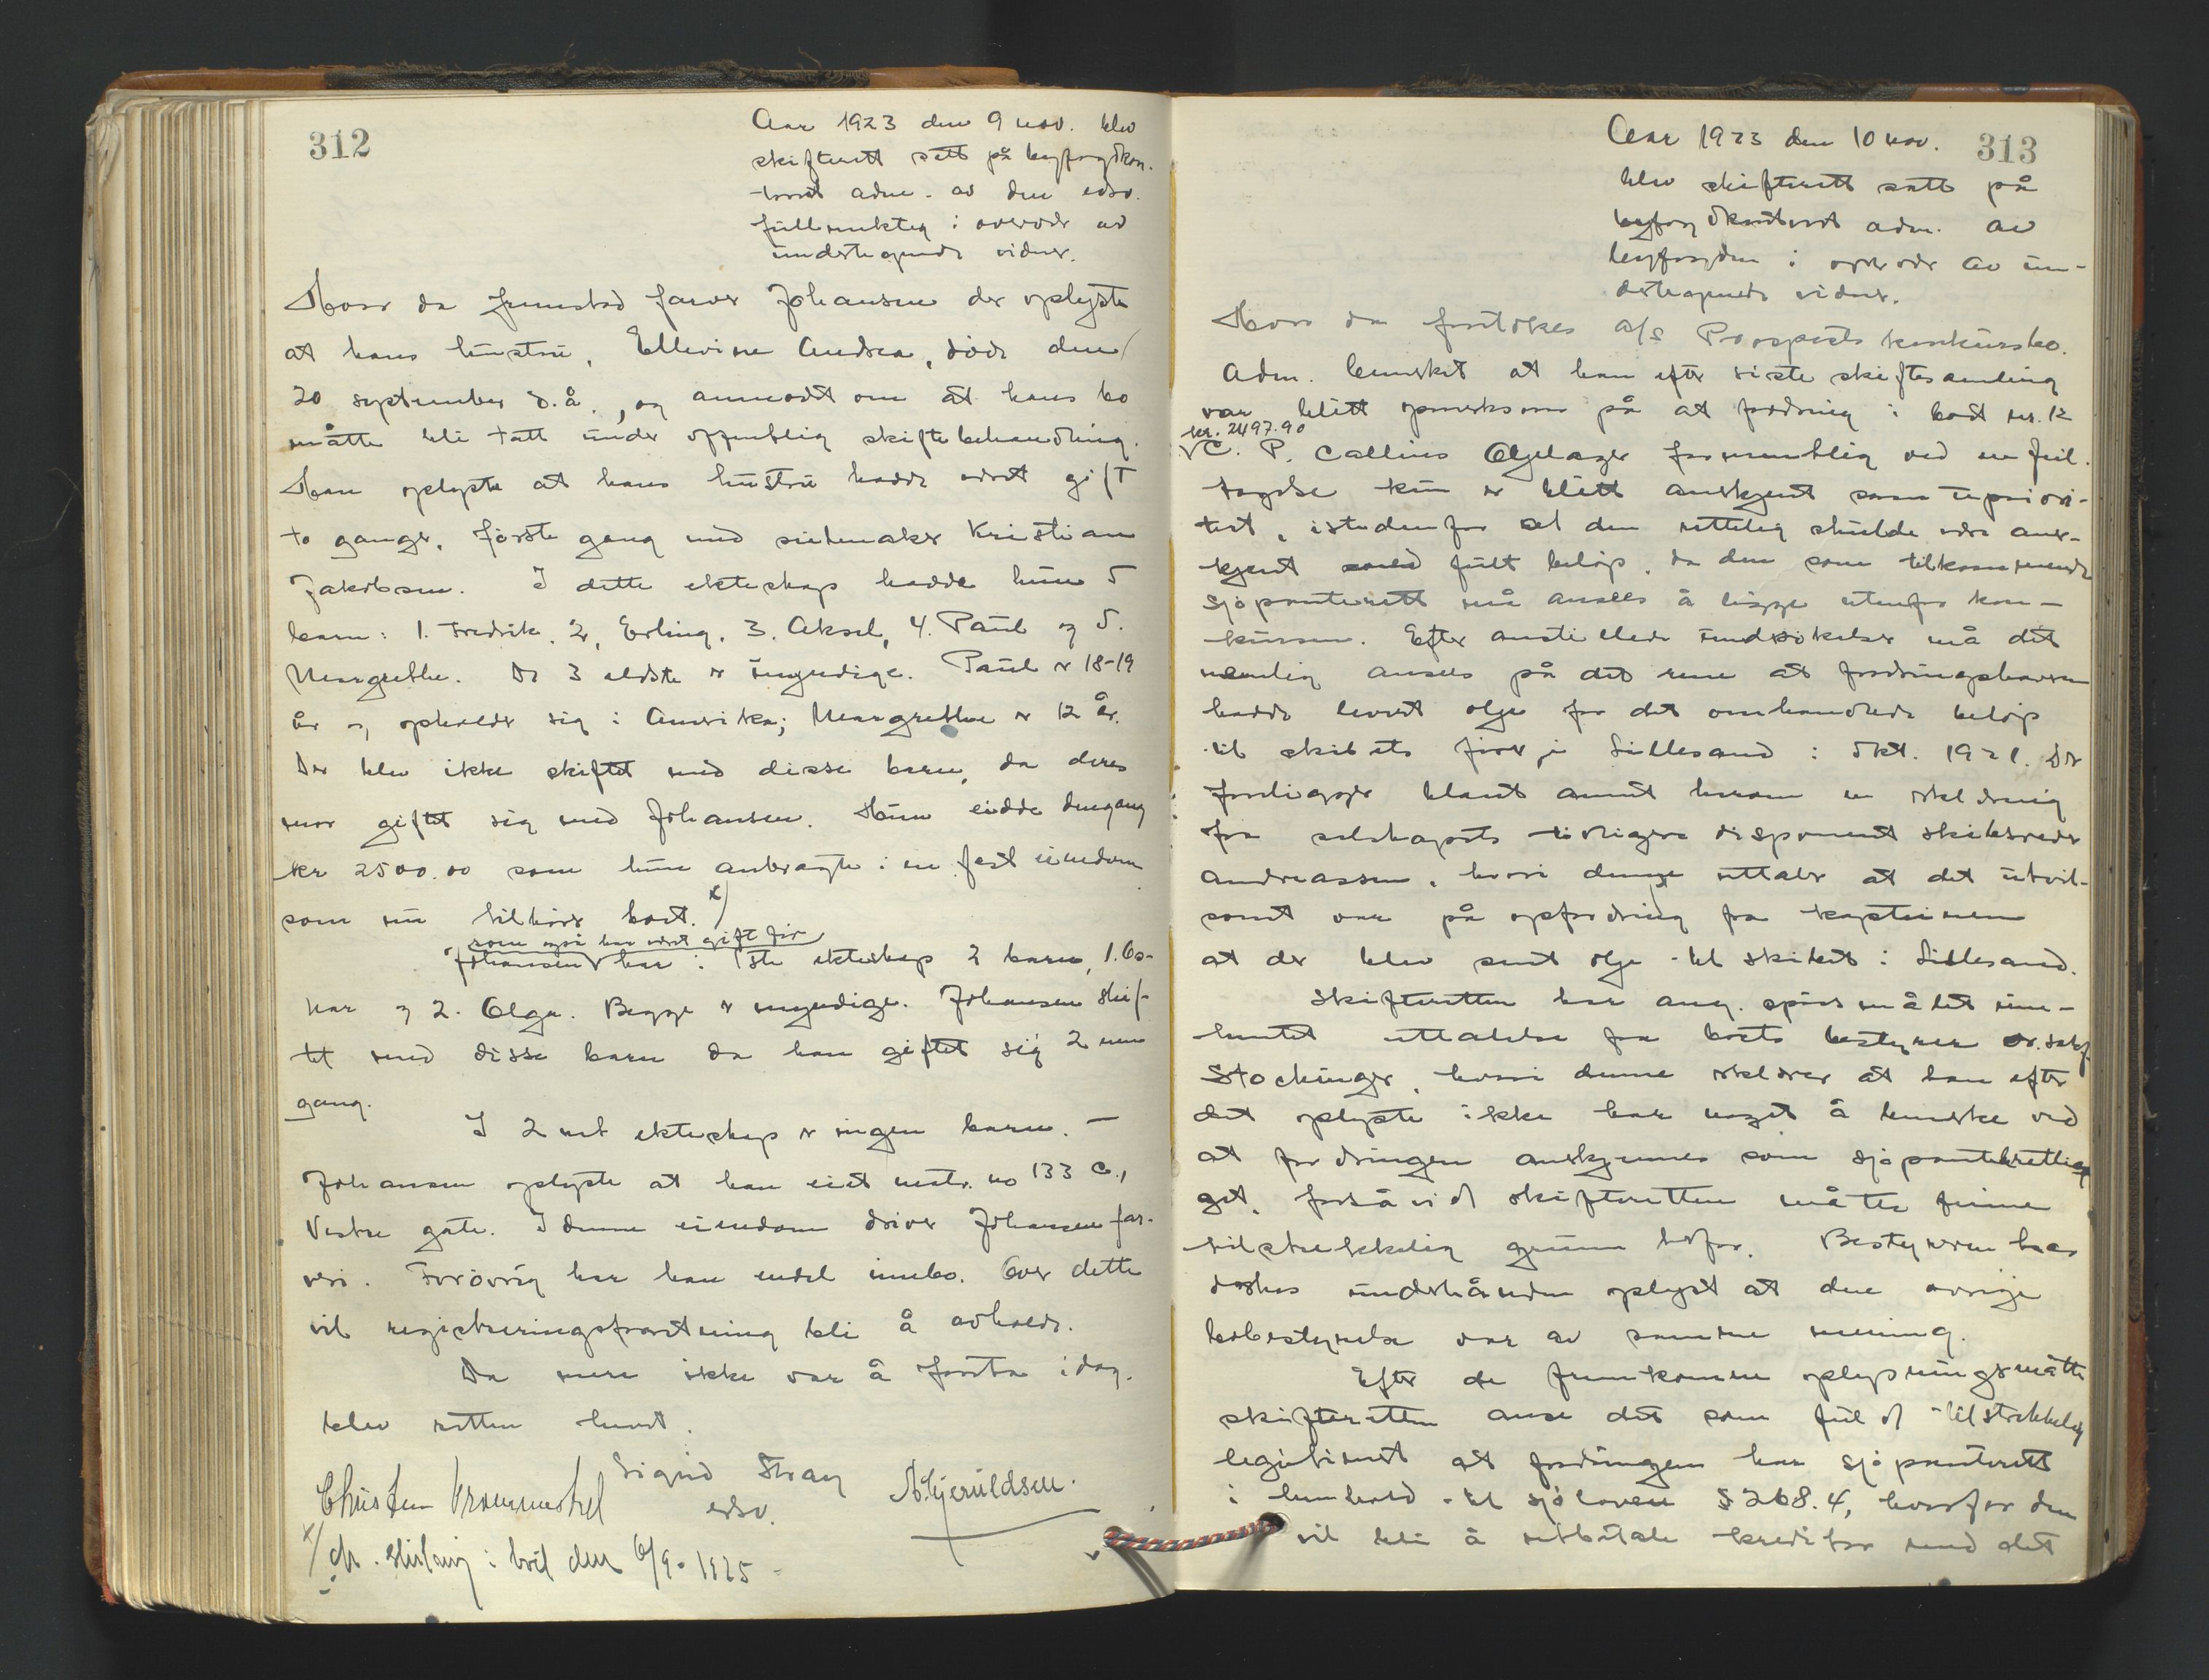 312
Aar 1923 den 9 nov. blev
skifterett satt på byfogdkon-
toret adm. av den edsv.
fullmektig i overvær av
undertegnede vidner.
Hvor da fremstod farver Johansen der oplyste
at hans hustru, Ellevine Andrea, døde den
20 september d.å., og anmodet om at hans bo
måtte bli tatt under offentlig skiftebehandling.
Han oplyste at hans hustru hadde været gift
to ganger, første gang med Kristian
Jakobsen. I dette ekteskap hadde hun 5
barn: 1. Fredrik, 2, Erling, 3. Aksel, 4. Paul og 5.
Margrethe. De 3 eldste er myndige. Paul er 18-19
år og opholder sig i Amerika; Margrethe er 12 år.
Der blev ikke skiftet med disse barn, da deres
mor giftet sig med Johansen. Hun eidde dengang
kr 2500.00 som hun anbragte i en fast eiendom
som nu tilhører boet. x)
som også har været gift før
Johansen har i 1ste ekteskap 2 barn, 1. Os-
kar og 2. Olga. Begge er myndige. Johansen skif-
tet med disse barn da han giftet sig 2 nen
gang.
I 2 net ekteskap er ingen barn. —
Johansen oplyste at han eiet matr. no 133 c.,
Vestre gate. I denne eiendom driver Johansen far-
veri. Forøvrig har han endel innbo. Over dette
vil registreringsforretning bli å avholde.
Da mere ikke var å foreta idag,
blev retten hevet.
Sigurd Stray
edsv.
Christen
A Gjeruldsen.
x/ den 6/9- 1925
313
Aar 1923 den 10 nov.
blev skifterett satt på
byfogdkontoret adm. av
byfogden i overvær av un-
dertegnede vidner.
Hvor da foretokes A/S Prospects konkursbo.
Adm. bemerket at han efter siste skiftesamling
var blitt opmerksom på at fordring i boet nr. 12
kr. 2497.90
C. P. Callins Oljelager formentlig ved en feil-
tagelse kun er blitt anerkjent som upriori-
tert, istedenfor at den rettelig skulde være aner-
kjent med fullt beløp, da den som tilkommende
sjøpanterett må ansees å ligge utenfor kon-
kursen. Efter anstillede undersøkelser må det
nemlig ansees på det rene at fordringshaveren
hadde levert olje for det omhandlede beløp
til skibets fører i Lillesand i okt. 1921. Der
foreligger blant annet herom en erklæring
fra selskapets tidligere disponent skibsreder
Andreassen, hvori denne uttaler at det utvil-
somt var på opfordring fra kapteinen
at der blev sent olje til skibet i Lillesand.
Skifteretten har ang. spørsmålet inn-
hentet uttalelse fra boets bestyrer o.r.sakf.
Stockinger, hvori denne erklærer at han efter
det oplyste ikke har noget å bemerke ved
at fordringen anerkjennes som sjøpanteberetti-
get, forsåvidt skifteretten måtte finne
tilstrekkelig grunn derfor. Bestyreren har
derhos underhånden oplyst at den øvrige
bobestyrelse var av samme mening.
Efter de fremkomne oplysninger måtte
skifteretten anse det som fuldt tilstrekkelig
legitimert at fordringen har sjøpanterett
i henhold til sjøloven § 268.4, hvorfor den
vil bli å utbetale kreditor med det